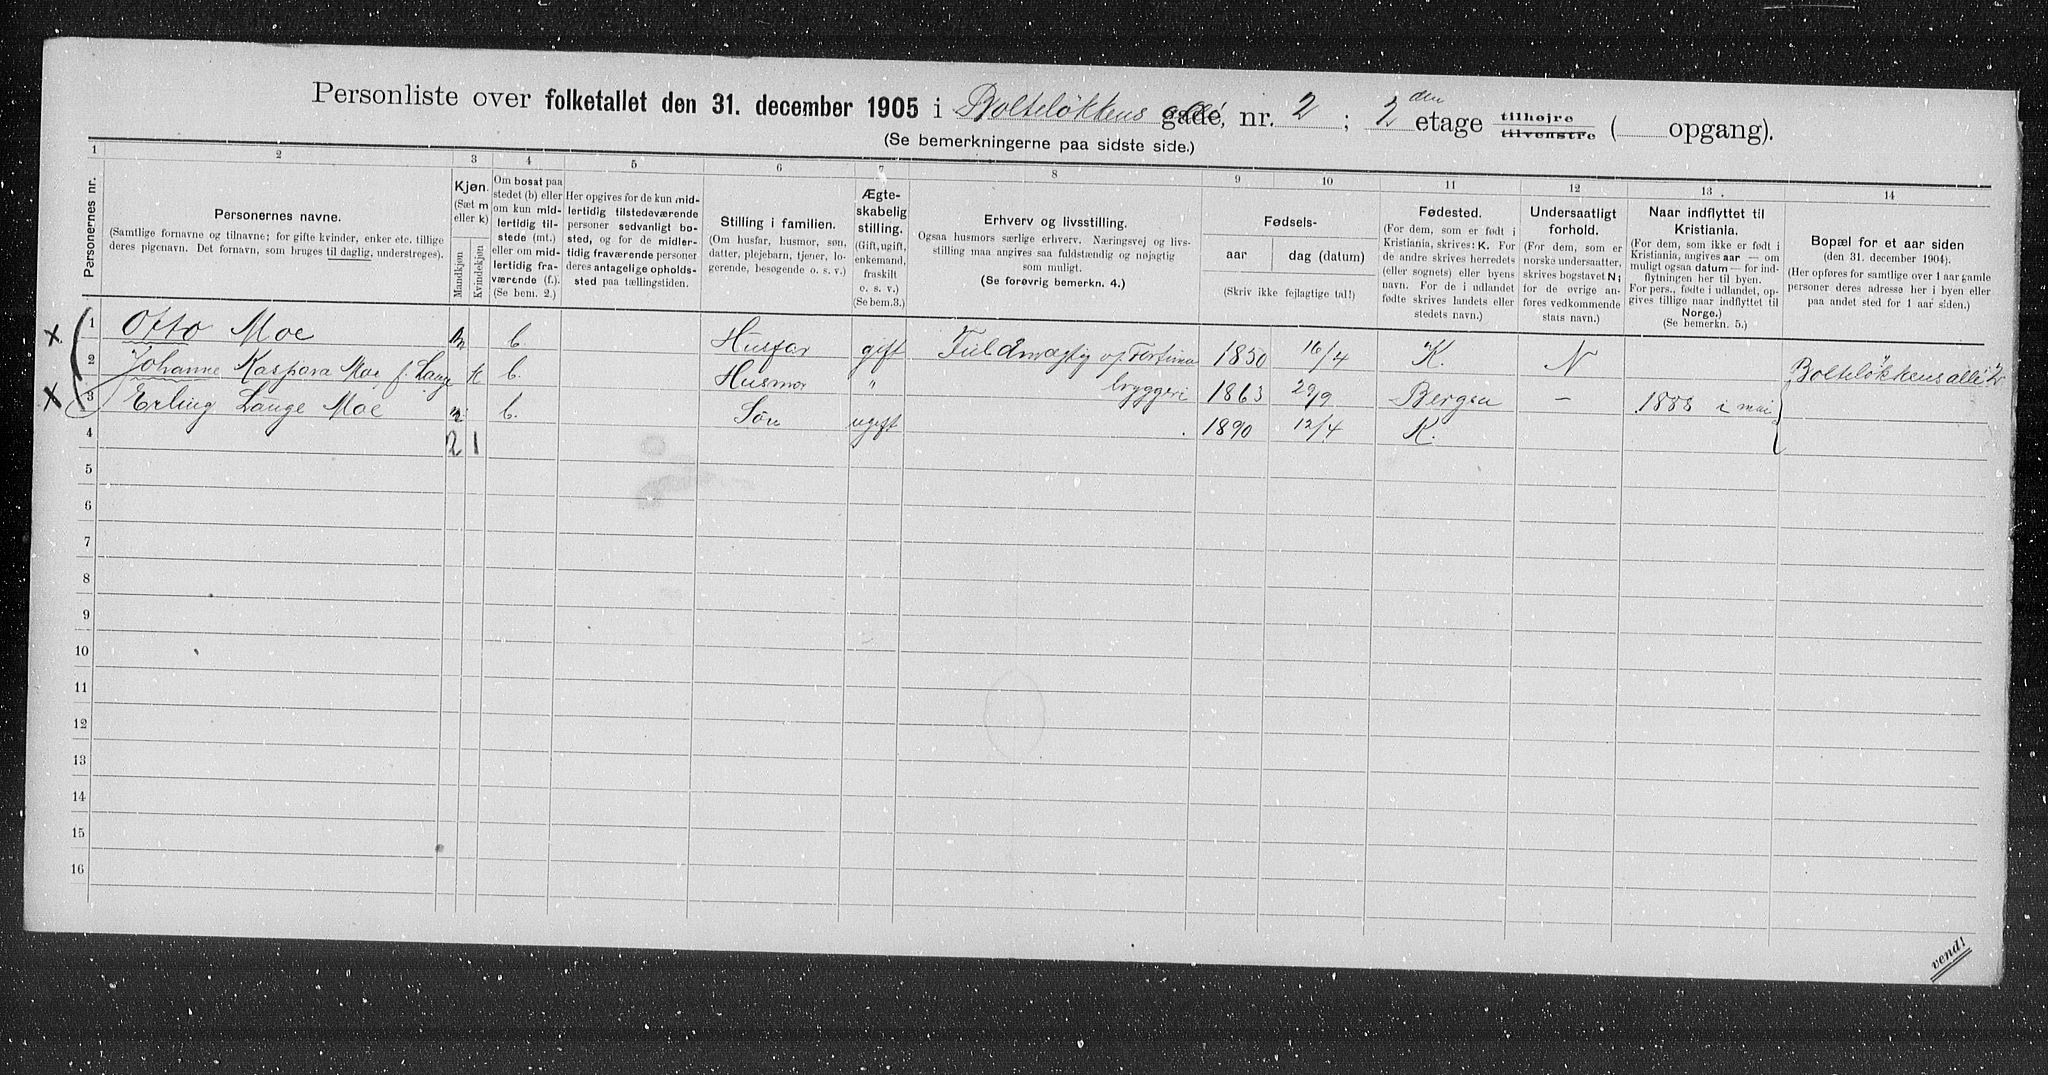 Personliste over folketallet den 31. december 1905 i Bolteløkkens allé gade, nr. 2 ; 2 den etage tilhøjre tilvenstre ( opgang).
(Se bemerkningerne paa sidste side.)
1 2 3 4 5 6 7 8 9 10 11 12 13 14
Personernes nr.
Personernes navne.
(Samtlige fornavne og tilnavne; for gifte kvinder, enker etc. tillige
deres pigenavn. Det fornavn, som bruges til daglig, understreges).
Kjøn.
(Sæt m
eller k)
Mandkjøn
Kvindekjøn
Om bosat paa
stedet (b) eller
om kun mid-
lertidig til-
stede (mt.)
eller om mid-
lertidig fra-
værende (f.).
(Se bem. 2.)
Her opgives for de kun mid-
lertidig tilstedeværende
personer sedvanligt bo-
sted, og for de midler-
tidig fraværende personer
deres antagelige opholds-
sted paa tællingstiden.
Stilling i familien.
(Om husfar, husmor, søn,
datter, plejebarn, tjener, lo-
gerende, besøgende o. s. v.)
Ægte-
skabelig
stilling.
(Gift, ugift,
enkemand,
fraskilt
o. s. v.)
(Se bem. 3.)
Erhverv og livsstilling.
Ogsaa husmors særlige erhverv. Næringsvej og livs-
stilling maa angives saa fuldstændig og nøjagtig
som muligt.
(Se forøvrig bemerkn. 4.)
Fødsels-
aar dag (datum)
(Skriv ikke fejlagtige tal!)
Fødested.
(For dem, som er født i
Kristiania, skrives: K. For
de andre skrives herredets
(eller sognets) eller byens
navn. For de i udlandet
fødte skrives landets eller
stedets navn.)
Undersaatligt
forhold.
(For dem, som er
norske undersaatter,
skrives bogstavet N;
for de øvrige an-
føres vedkommende
stats navn.)
Naar indflyttet til
Kristiania.
(For dem, som ikke er født i
Kristiania, angives aar — om
muligt ogsaa datum — for ind-
flytningen her til byen.
For pers., fødte i udlandet, op-
gives tillige naar indflyttet til
Norge.)
(Se bemerkn. 5.)
Bopæl for et aar siden
(den 31. december 1904).
(Her opføres for samtlige over 1 aar gamle
personer deres adresse her i byen eller
paa andet sted for 1 aar siden.)
x 1 Otto Moe m b. Husfar gift Fuldmægtig v. Fortuna 1850 16/4 K. N
2 Johanne Kaspara Moe f. Lange k b. Husmor " bryggeri 1863 29/9 Bergen — 1888 i mai Bolteløkkens allé 2
x 3 Erling Lange Moe m b. Søn ugift 1890 12/4 K.
4 2 1
5
6
7
8
9
10
11
12
13
14
15
16
vend!